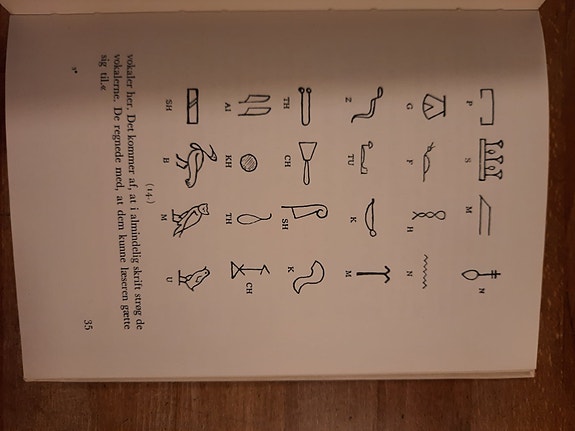 P S M N
G F H N
Z TU K M
TH CH SH K
AI KH TH CH
SH B M U
(14.)
vokaler her. Det kommer af, at i almindelig skrift strøg de
vokalerne. De regnede med, at dem kunne læseren gætte
sig til.«
3* 35